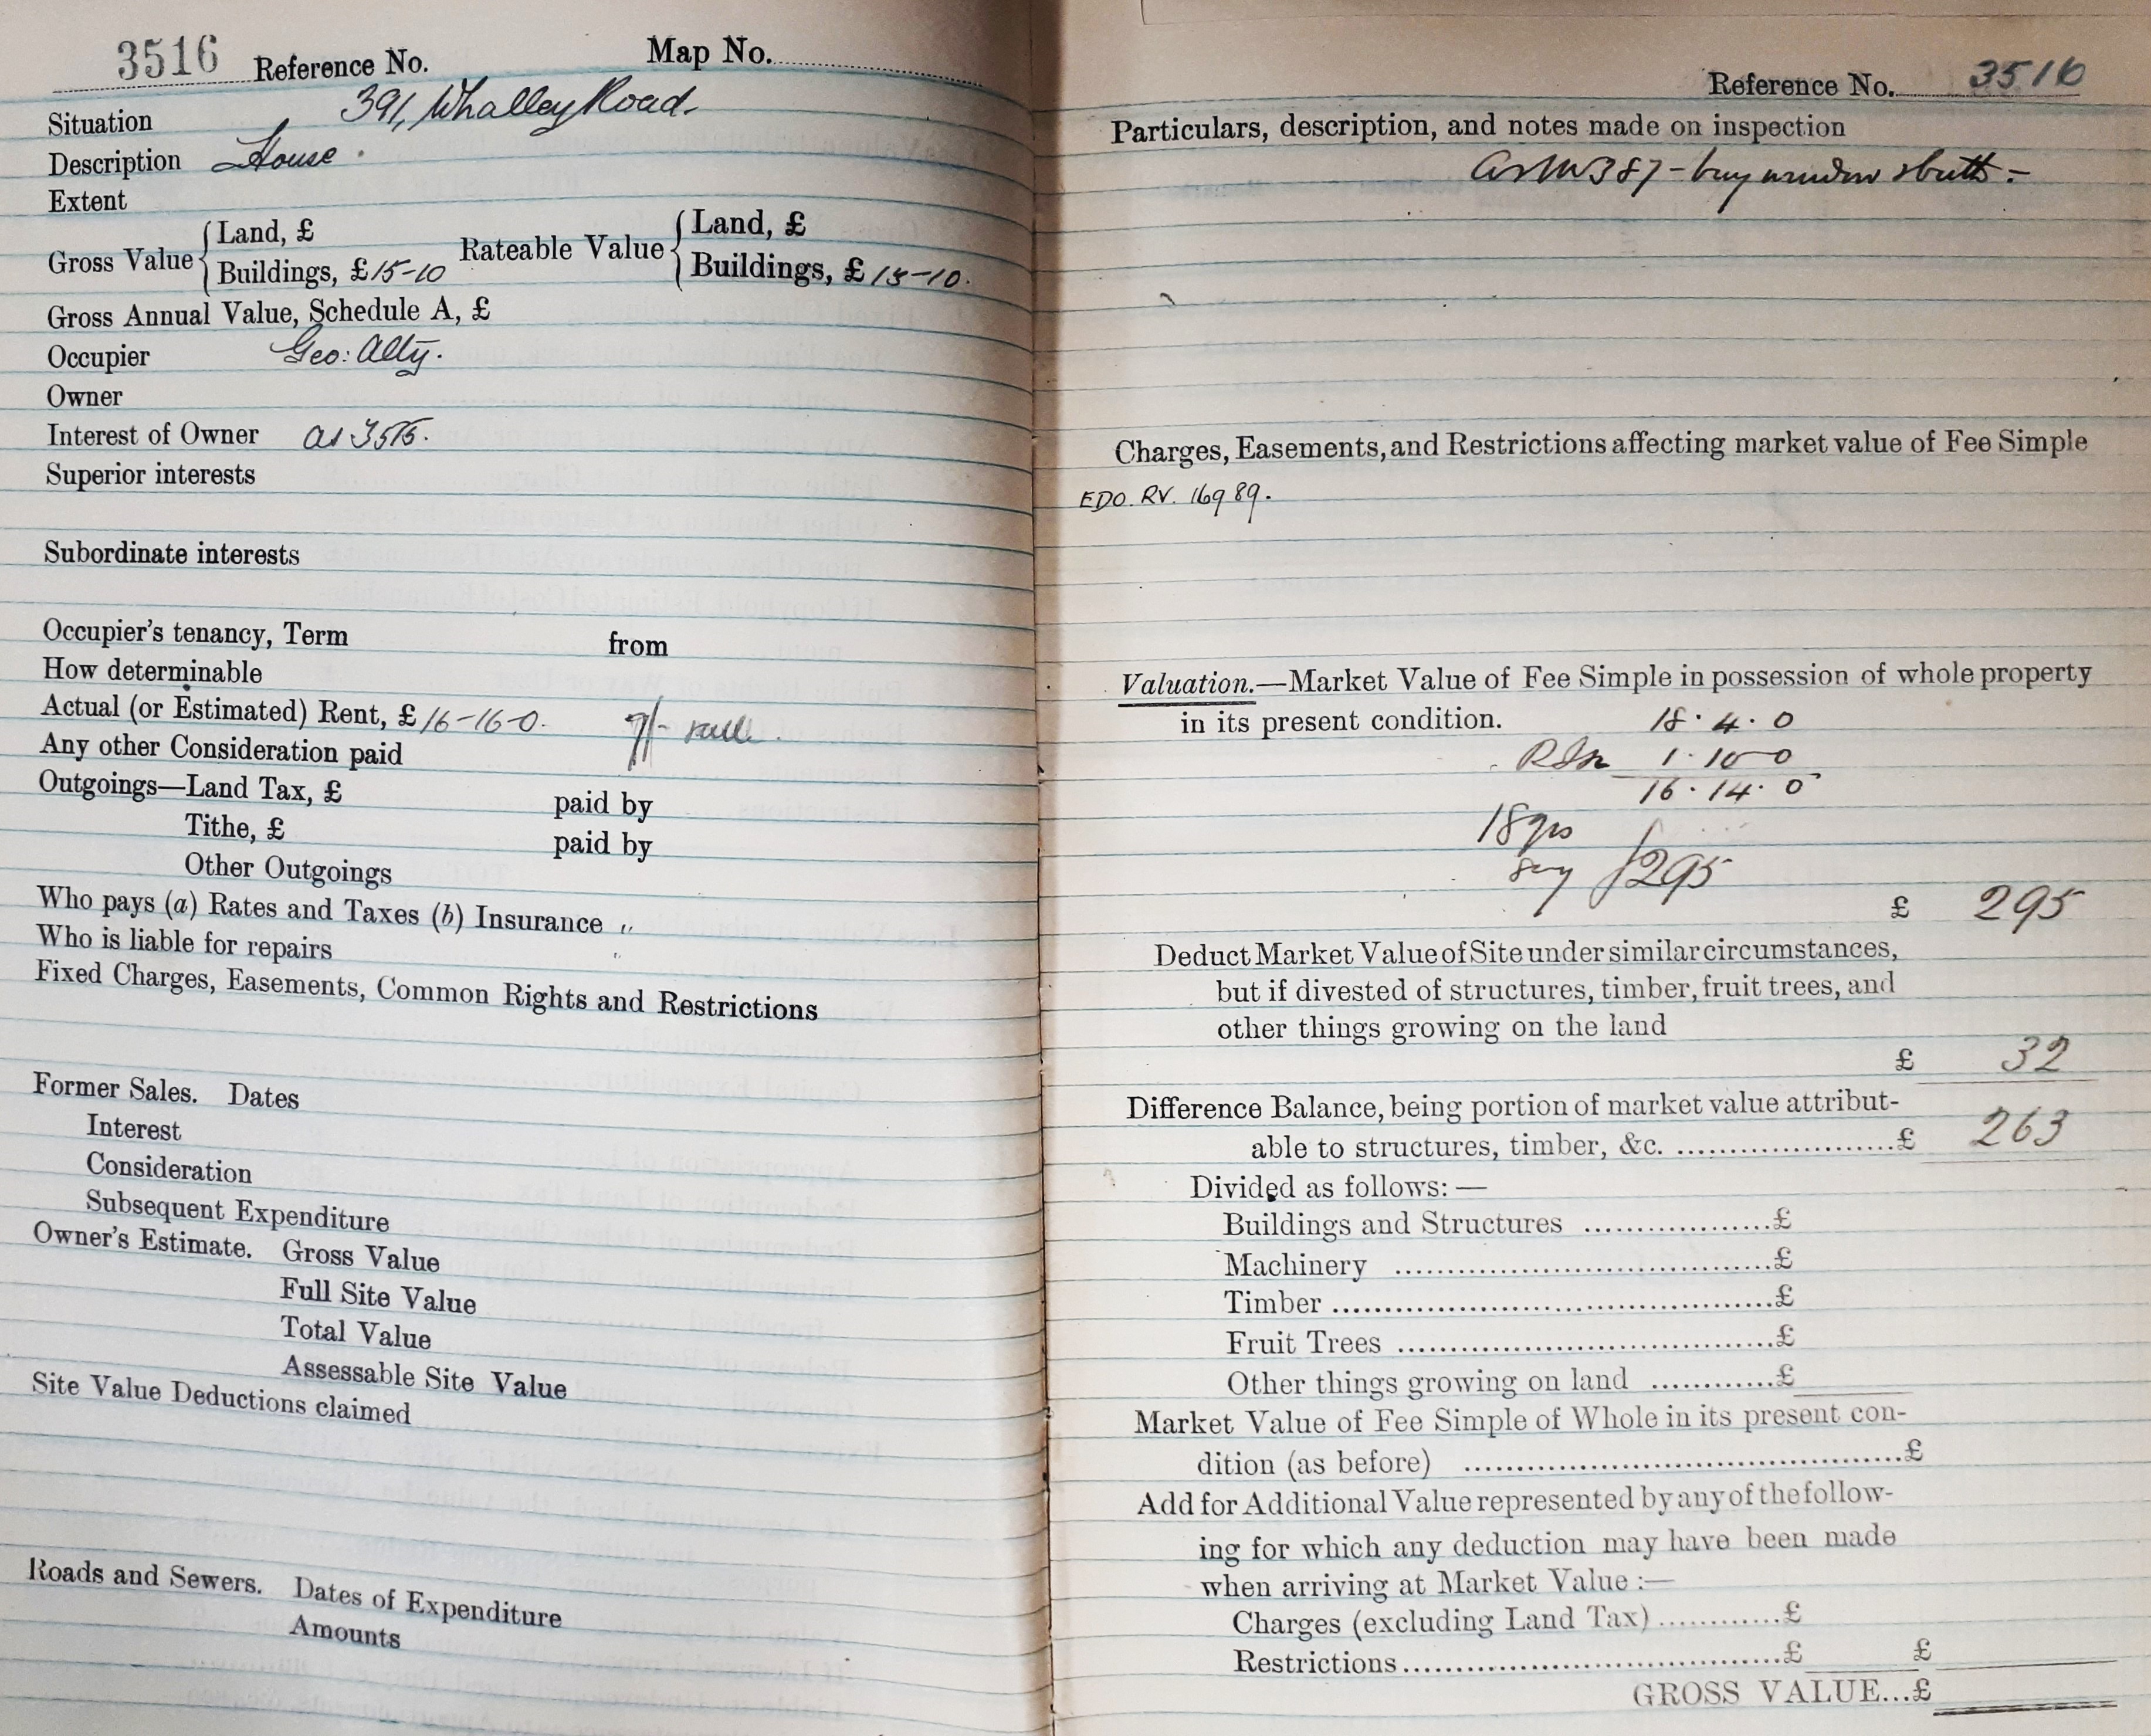 3516 Reference No. Map No.
Situation 391, Whalley Road.
Description House.
Extent
Gross Value { Land, £ Rateable Value { Land, £
Buildings, £ 15-10 Buildings, £ 15-10.
Gross Annual Value, Schedule A, £
Occupier Geo: Alty.
Owner
Interest of Owner as 3515.
Superior interests
Subordinate interests
Occupier's tenancy, Term from
How determinable
Actual (or Estimated) Rent, £ 16-16-0. 7/-
Any other Consideration paid
Outgoings—Land Tax, £ paid by
Tithe, £ paid by
Other Outgoings
Who pays (a) Rates and Taxes (b) Insurance "
Who is liable for repairs "
Fixed Charges, Easements, Common Rights and Restrictions
Former Sales. Dates
Interest
Consideration
Subsequent Expenditure
Owner's Estimate. Gross Value
Full Site Value
Total Value
Assessable Site Value
Site Value Deductions claimed
Roads and Sewers. Dates of Expenditure
Amounts
Reference No. 3516
Particulars, description, and notes made on inspection
387 - bay window
Charges, Easements, and Restrictions affecting market value of Fee Simple
EDO. RV. 16989.
Valuation.—Market Value of Fee Simple in possession of whole property
in its present condition. 18.4.0
1.10.0
16.14.0
18 yrs
say £295
£ 295
Deduct Market Value of Site under similar circumstances,
but if divested of structures, timber, fruit trees, and
other things growing on the land
£ 32
Difference Balance, being portion of market value attribut-
able to structures, timber, &c. ......................£ 263
Divided as follows: —
Buildings and Structures ..................£
Machinery ....................................£
Timber ..........................................£
Fruit Trees ....................................£
Other things growing on land ............£
Market Value of Fee Simple of Whole in its present con-
dition (as before) ..........................................£
Add for Additional Value represented by any of the follow-
ing for which any deduction may have been made
when arriving at Market Value :—
Charges (excluding Land Tax) ............£
Restrictions ....................................£ £
GROSS VALUE...£